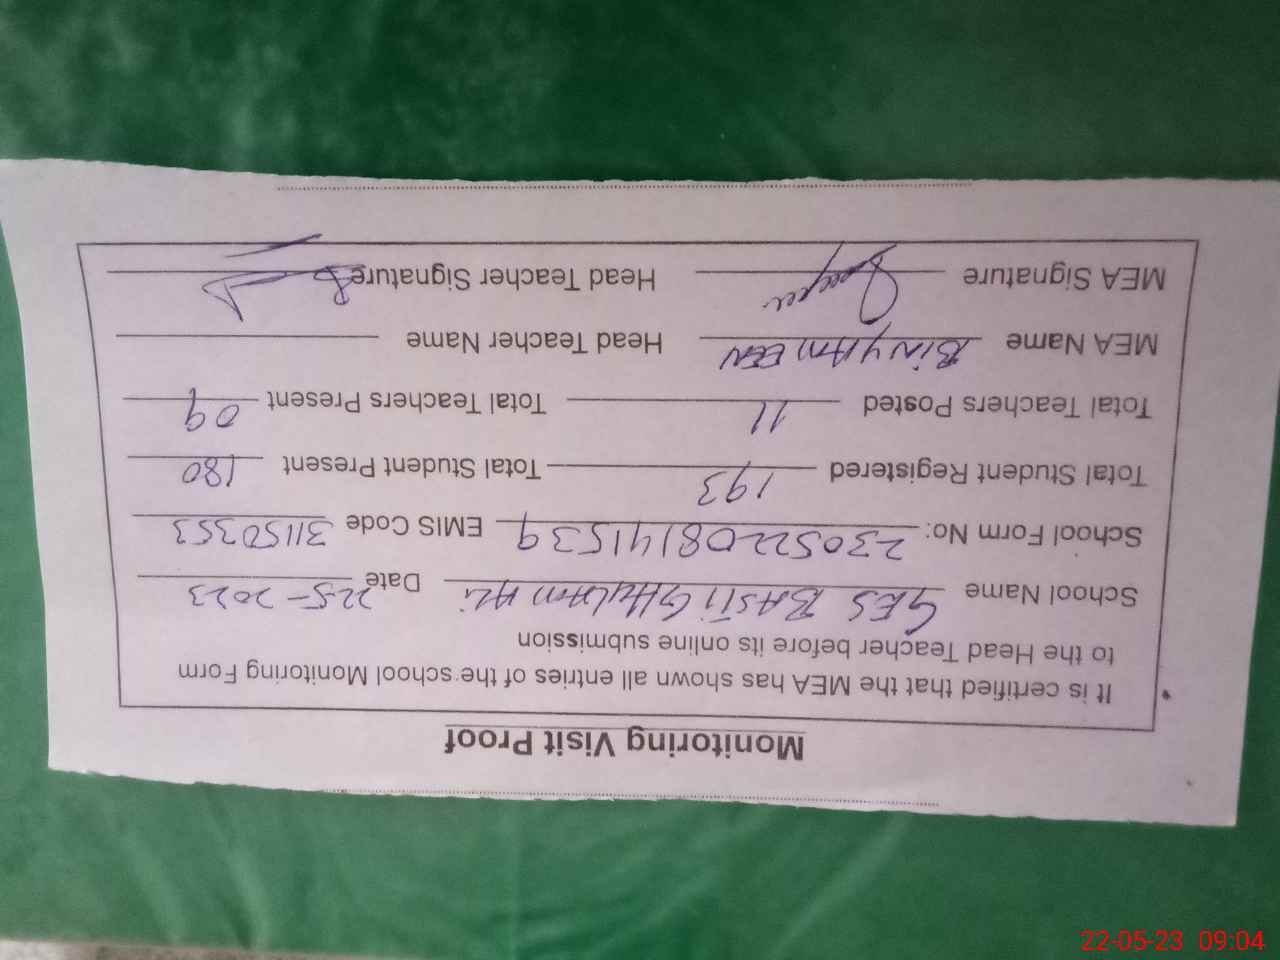 Monitoring Visit Proof
It is certified that the MEA has shown all entries of the school Monitoring Form
to the Head Teacher before its online submission
School Name GES BASTI GHULAM Ali Date 22-5-2023
School Form No: 23052208141539 EMIS Code 31150353
Total Student Registered 193 Total Student Present 180
Total Teachers Posted 11 Total Teachers Present 09
MEA Name BiNYAMEEN Head Teacher Name
MEA Signature Head Teacher Signature
22-05-23 09:04